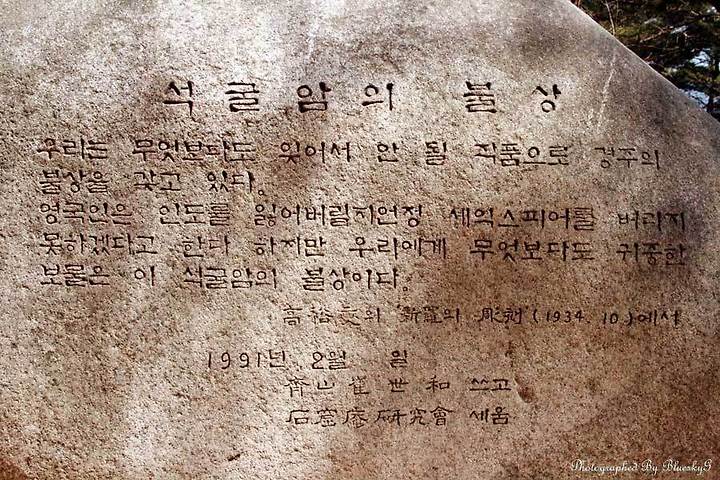 석굴암의 불상
우리는 무엇보다도 잊어서 안 될 작품으로 경주의
불상을 갖고 있다.
영국인은 인도를 잃어버릴지언정 셰익스피어를 버리지
못하겠다고 한다 하지만 우리에게 무엇보다도 귀중한
보물은 이 석굴암의 불상이다.
高裕燮의 新羅의 彫刻 (1934. 10)에서
1991년 2월 일
齊山 崔世和 쓰고
石窟庵硏究會 세움
Photographed By BlueskyG